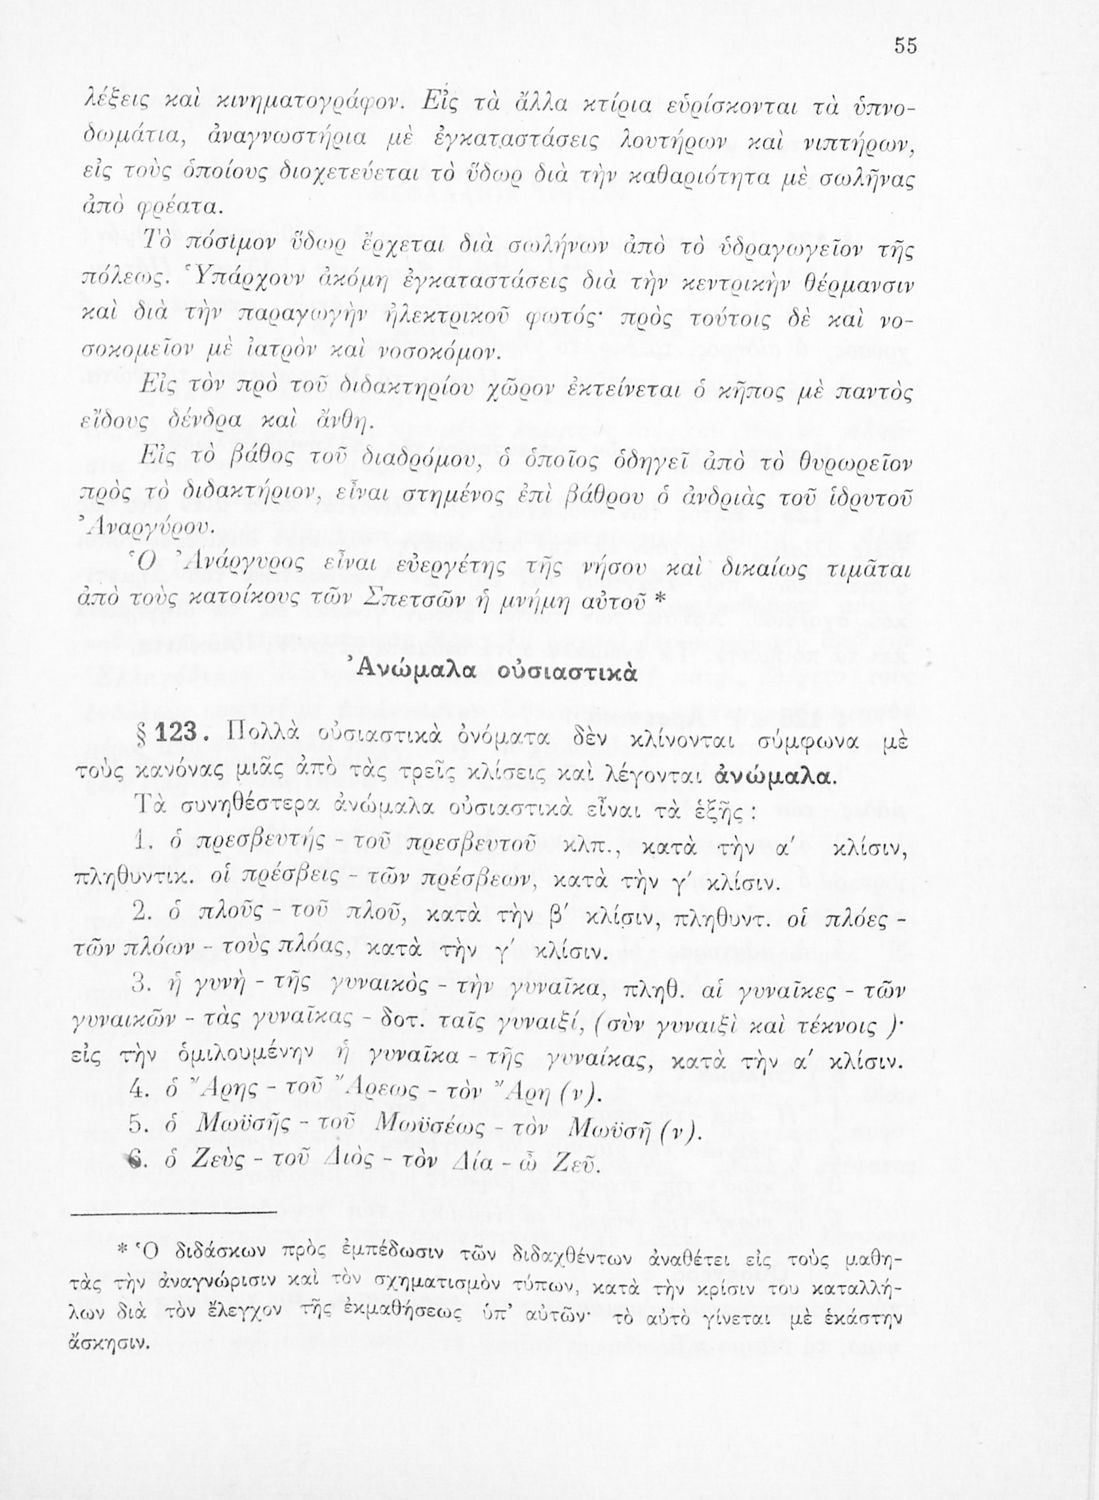 55
λέξεις καὶ κινηματογράφον. Εἰς τὰ ἄλλα κτίρια εὑρίσκονται τὰ ὑπνο-
δωμάτια, ἀναγνωστήρια μὲ ἐγκαταστάσεις λουτήρων καὶ νιπτήρων,
εἰς τοὺς ὁποίους διοχετεύεται τὸ ὕδωρ διὰ τὴν καθαριότητα μὲ σωλῆνας
ἀπὸ φρέατα.
Τὸ πόσιμον ὕδωρ ἔρχεται διὰ σωλήνων ἀπὸ τὸ ὑδραγωγεῖον τῆς
πόλεως. Ὑπάρχουν ἀκόμη ἐγκαταστάσεις διὰ τὴν κεντρικὴν θέρμανσιν
καὶ διὰ τὴν παραγωγὴν ἠλεκτρικοῦ φωτός· πρὸς τούτοις δὲ καὶ νο-
σοκομεῖον μὲ ἰατρὸν καὶ νοσοκόμον.
Εἰς τὸν πρὸ τοῦ διδακτηρίου χῶρον ἐκτείνεται ὁ κῆπος μὲ παντὸς
εἴδους δένδρα καὶ ἄνθη.
Εἰς τὸ βάθος τοῦ διαδρόμου, ὁ ὁποῖος ὁδηγεῖ ἀπὸ τὸ θυρωρεῖον
πρὸς τὸ διδακτήριον, εἶναι στημένος ἐπὶ βάθρου ὁ ἀνδριὰς τοῦ ἱδρυτοῦ
Ἀναργύρου.
Ὁ Ἀνάργυρος εἶναι εὐεργέτης τῆς νήσου καὶ δικαίως τιμᾶται
ἀπὸ τοὺς κατοίκους τῶν Σπετσῶν ἡ μνήμη αὐτοῦ *
Ἀνώμαλα οὐσιαστικὰ
§ 123. Πολλὰ οὐσιαστικὰ ὀνόματα δὲν κλίνονται σύμφωνα μὲ
τοὺς κανόνας μιᾶς ἀπὸ τὰς τρεῖς κλίσεις καὶ λέγονται ἀνώμαλα.
Τὰ συνηθέστερα ἀνώμαλα οὐσιαστικὰ εἶναι τὰ ἑξῆς :
1. ὁ πρεσβευτής - τοῦ πρεσβευτοῦ κλπ., κατὰ τὴν α′ κλίσιν,
πληθυντικ. οἱ πρέσβεις - τῶν πρέσβεων, κατὰ τὴν γ′ κλίσιν.
2. ὁ πλοῦς - τοῦ πλοῦ, κατὰ τὴν β′ κλίσιν, πληθυντ. οἱ πλόες -
τῶν πλόων - τοὺς πλόας, κατὰ τὴν γ′ κλίσιν.
3. ἡ γυνὴ - τῆς γυναικὸς - τὴν γυναῖκα, πληθ. αἱ γυναῖκες - τῶν
γυναικῶν - τὰς γυναῖκας - δοτ. ταῖς γυναιξί, (σὺν γυναιξὶ καὶ τέκνοις )·
εἰς τὴν ὁμιλουμένην ἡ γυναῖκα - τῆς γυναίκας, κατὰ τὴν α′ κλίσιν.
4. ὁ Ἄρης - τοῦ Ἄρεως - τὸν Ἄρη (ν).
5. ὁ Μωϋσῆς - τοῦ Μωϋσέως - τὸν Μωϋσῆ (ν).
6. ὁ Ζεὺς - τοῦ Διὸς - τὸν Δία - ὦ Ζεῦ.
* Ὁ διδάσκων πρὸς ἐμπέδωσιν τῶν διδαχθέντων ἀναθέτει εἰς τοὺς μαθη-
τὰς τὴν ἀναγνώρισιν καὶ τὸν σχηματισμὸν τύπων, κατὰ τὴν κρίσιν του καταλλή-
λων διὰ τὸν ἔλεγχον τῆς ἐκμαθήσεως ὑπ’ αὐτῶν· τὸ αὐτὸ γίνεται μὲ ἑκάστην
ἄσκησιν.